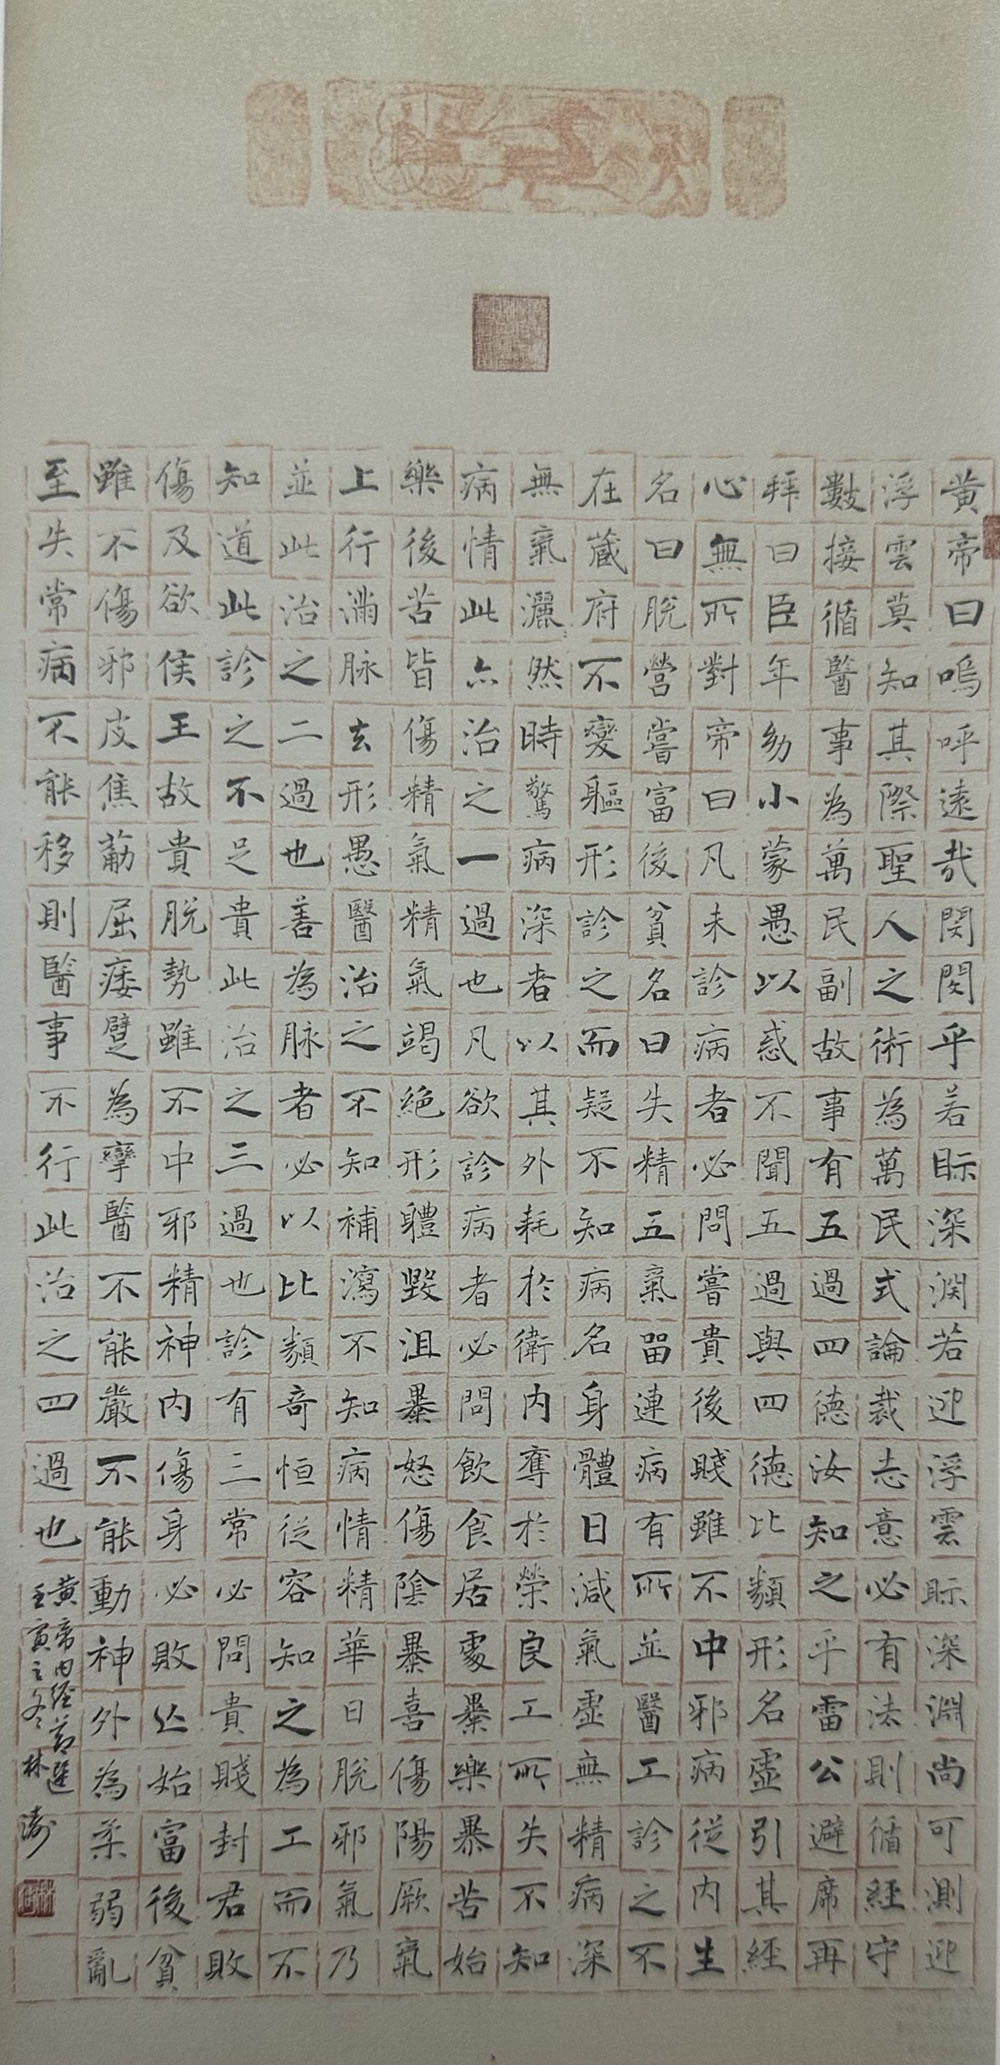 黄帝曰嗚呼遠哉閔閔乎若眎深淵若迎浮雲眎深淵尚可測迎
浮雲莫知其際聖人之術為萬民式論裁志意必有法則循經守
數接循醫事為萬民副故事有五過四德汝知之乎雷公避席再
拜曰臣年幼小蒙愚以惑不聞五過與四德比類形名虛引其經
心無所對帝曰凡未診病者必問嘗貴後賤雖不中邪病從內生
名曰脫營嘗富後貧名曰失精五氣畱連病有所並醫工診之不
在藏府不變軀形診之而疑不知病名身體日減氣虛無精病深
無氣灑然時驚病深者以其外耗於衛內奪於榮良工所失不知
病情此亦治之一過也凡欲診病者必問飲食居處暴樂暴苦始
樂後苦皆傷精氣精氣竭絕形體毀沮暴怒傷陰暴喜傷陽厥氣
上行滿脉去形愚醫治之不知補瀉不知病情精華日脫邪氣乃
並此治之二過也善為脉者必以比類奇恒從容知之為工而不
知道此診之不足貴此治之三過也診有三常必問貴賤封君敗
傷及欲侯王故貴脫勢雖不中邪精神內傷身必敗亾始富後貧
雖不傷邪皮焦筋屈痿躄為攣醫不能嚴不能動神外為柔弱亂
至失常病不能移則醫事不行此治之四過也
黄帝内經節選
壬寅之冬 林濤